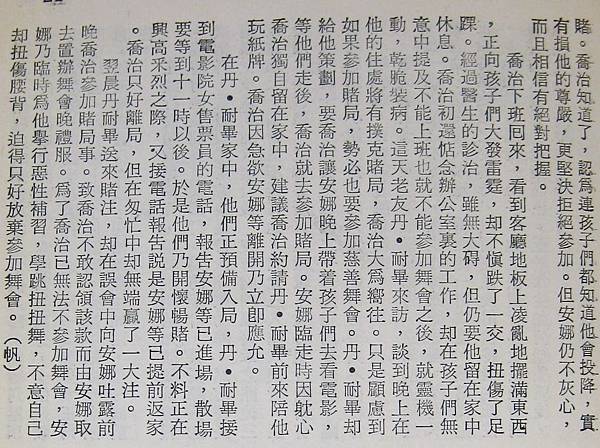 賭。喬治知道了，認爲連孩子們都知道他會投降，實
有損他的尊嚴，更堅決拒絕參加。但安娜仍不灰心，
而且相信有絕對把握。
喬治下班囘來，看到客廳地板上凌亂地擺滿東西
，正向孩子們大發雷霆，却不愼跌了一交，扭傷了足
踝。經過醫生的診治，雖無大碍，但仍要他留在家中
休息。喬治初還惦念辦公室裏的工作，却在孩子們無
意中提及不能上班也就不能參加舞會之後，就靈機一
動，乾脆裝病。這天老友丹•耐畢來訪，談到晚上在
他的住處將有撲克賭局，喬治大爲嚮往。只是顧慮到
如果參加賭局，勢必也要參加慈善舞會。丹•耐畢却
給他策劃，要喬治讓安娜晚上帶着孩子們去看電影，
等他們走後，喬治就去參加賭局。安娜臨走時因躭心
喬治獨自留在家中，建議喬治約請丹•耐畢前來陪他
玩紙牌。喬治因急欲安娜等離開乃立即應允。
在丹•耐畢家中，他們正預備入局，丹•耐畢接
到電影院女售票員的電話，報告安娜等已進場，散場
要等到十一時以後。於是他們乃開懷暢賭。不料正在
興高釆烈之際，又接電話報告説是安娜等已提前返家
。喬治只好離局，但在匆忙中却無端贏了一大注。
翌晨丹耐畢送來賭注，却在誤會中向安娜吐露前
晚喬治參加賭局事。致喬治不敢認領該款而由安娜取
去置辦舞會晚禮服。爲了喬治已無法不參加舞會，安
娜乃臨時爲他舉行惡性補習，學跳扭扭舞，不意自己
却扭傷腰背，迫得只好放棄參加舞會。（帆）